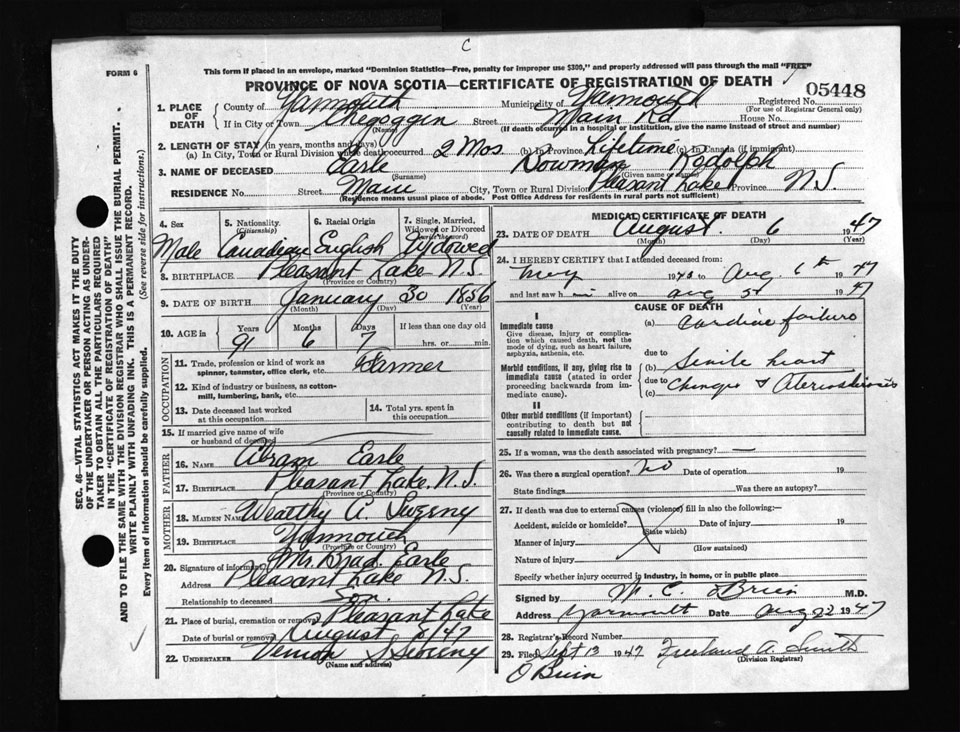 C
FORM 6
This form if placed in an envelope, marked "Dominion Statistics—Free, penalty for improper use $300," and properly addressed will pass through the mail "FREE"
PROVINCE OF NOVA SCOTIA—CERTIFICATE OF REGISTRATION OF DEATH
05448
1. PLACE OF DEATH
County of Yarmouth Municipality of Yarmouth Registered No.
(For use of Registrar General only)
If in City or Town Chegoggin Street Main Rd House No.
(Name) (If death occurred in a hospital or institution, give the name instead of street and number)
2. LENGTH OF STAY (in years, months and days)
(a) In City, Town or Rural Division where death occurred 2 Mos. (b) In Province Lifetime (c) In Canada (if immigrant)
3. NAME OF DECEASED Earle Bowman Rodolph
(Surname) (Given name or names)
RESIDENCE No. Street Main City, Town or Rural Division Pleasant Lake Province N.S.
(Residence means usual place of abode. Post Office Address for residents in rural parts not sufficient)
4. Sex 5. Nationality (Citizenship) 6. Racial Origin 7. Single, Married, Widowed or Divorced (write the word)
Male Canadian English Widowed
8. BIRTHPLACE Pleasant Lake N.S.
(Province or Country)
9. DATE OF BIRTH January 30 1856
(Month) (Date) (Year)
10. AGE in Years Months Days If less than one day old
91 6 7 hrs. or min.
OCCUPATION
11. Trade, profession or kind of work as spinner, teamster, office clerk, etc. Farmer
12. Kind of industry or business, as cotton-mill, lumbering, bank, etc.
13. Date deceased last worked at this occupation
14. Total yrs. spent in this occupation
15. If married give name of wife or husband of deceased
FATHER
16. NAME Abram Earle
17. BIRTHPLACE Pleasant Lake, N.S.
(Province or Country)
MOTHER
18. MAIDEN NAME Wealthy A. Sweeny
19. BIRTHPLACE Yarmouth
(Province or Country)
20. Signature of informant Mr. Brad. Earle
Address Pleasant Lake N.S.
Relationship to deceased Son
21. Place of burial, cremation or removal Pleasant Lake
Date of burial or removal August 8/47
22. UNDERTAKER Vernon S Sweeny
(Name and address)
MEDICAL CERTIFICATE OF DEATH
23. DATE OF DEATH August 6 1947
(Month) (Day) (Year)
24. I HEREBY CERTIFY that I attended deceased from:
19 to Aug. 6th 1947
and last saw h im alive on Aug 1947
CAUSE OF DEATH
I
Immediate cause
Give disease, injury or complication which caused death, not the mode of dying, such as heart failure, asphyxia, asthenia, etc.
(a) Cardiac failure
due to
Morbid conditions, if any, giving rise to immediate cause (stated in order proceeding backwards from immediate cause).
(b) Senile heart
due to
(c)
II
Other morbid conditions (if important) contributing to death but not causally related to immediate cause.
25. If a woman, was the death associated with pregnancy? —
26. Was there a surgical operation? No Date of operation 19
State findings Was there an autopsy?
27. If death was due to external causes (violence) fill in also the following:—
Accident, suicide or homicide? Date of injury 19
(State which)
Manner of injury
(How sustained)
Nature of injury
Specify whether injury occurred in industry, in home, or in public place
Signed by W. C. O'Brien M.D.
Address Yarmouth Date Aug 22 1947
28. Registrar's Record Number
29. Filed Sept 13 1947 Freeland A. Smith
(Division Registrar)
O'Brien
SEC. 46—VITAL STATISTICS ACT MAKES IT THE DUTY OF THE UNDERTAKER OR PERSON ACTING AS UNDERTAKER TO OBTAIN ALL THE PARTICULARS REQUIRED IN THE "CERTIFICATE OF REGISTRATION OF DEATH" AND TO FILE THE SAME WITH THE DIVISION REGISTRAR WHO SHALL ISSUE THE BURIAL PERMIT.
WRITE PLAINLY WITH UNFADING INK. THIS IS A PERMANENT RECORD.
Every item of information should be carefully supplied. (See reverse side for instructions.)